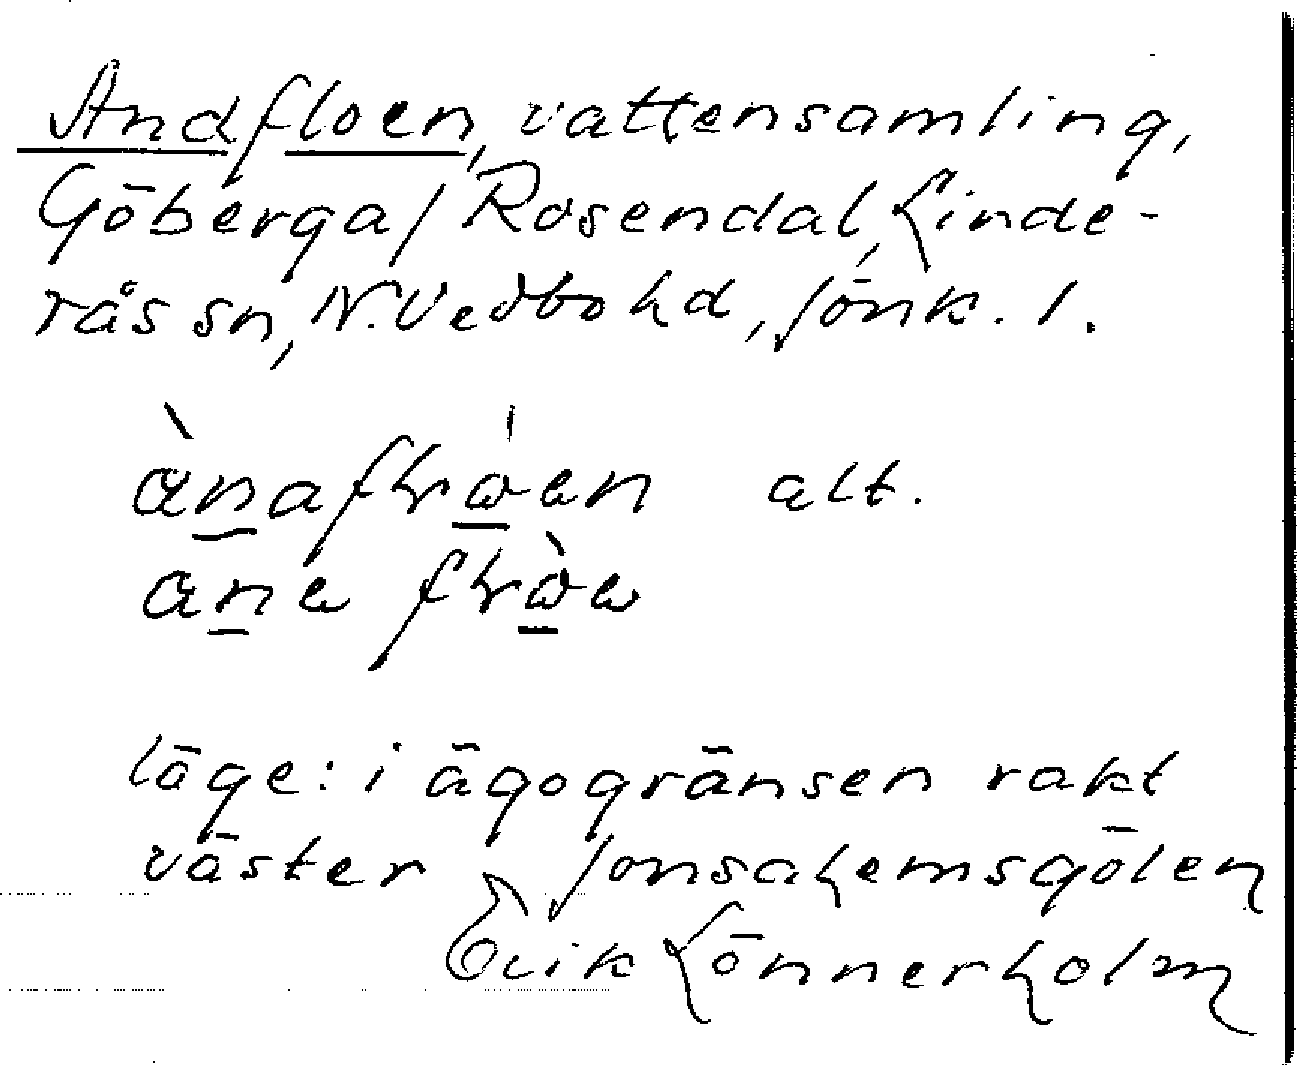 Andfloen, vattensamling,
Göberga/Rosendal, Linde-
rås sn, N. Vedbo hd, Jönk. l.
alt.
läge: i ägogränsen rakt
väster Jonsahemsgölen
Erik Lönnerholm